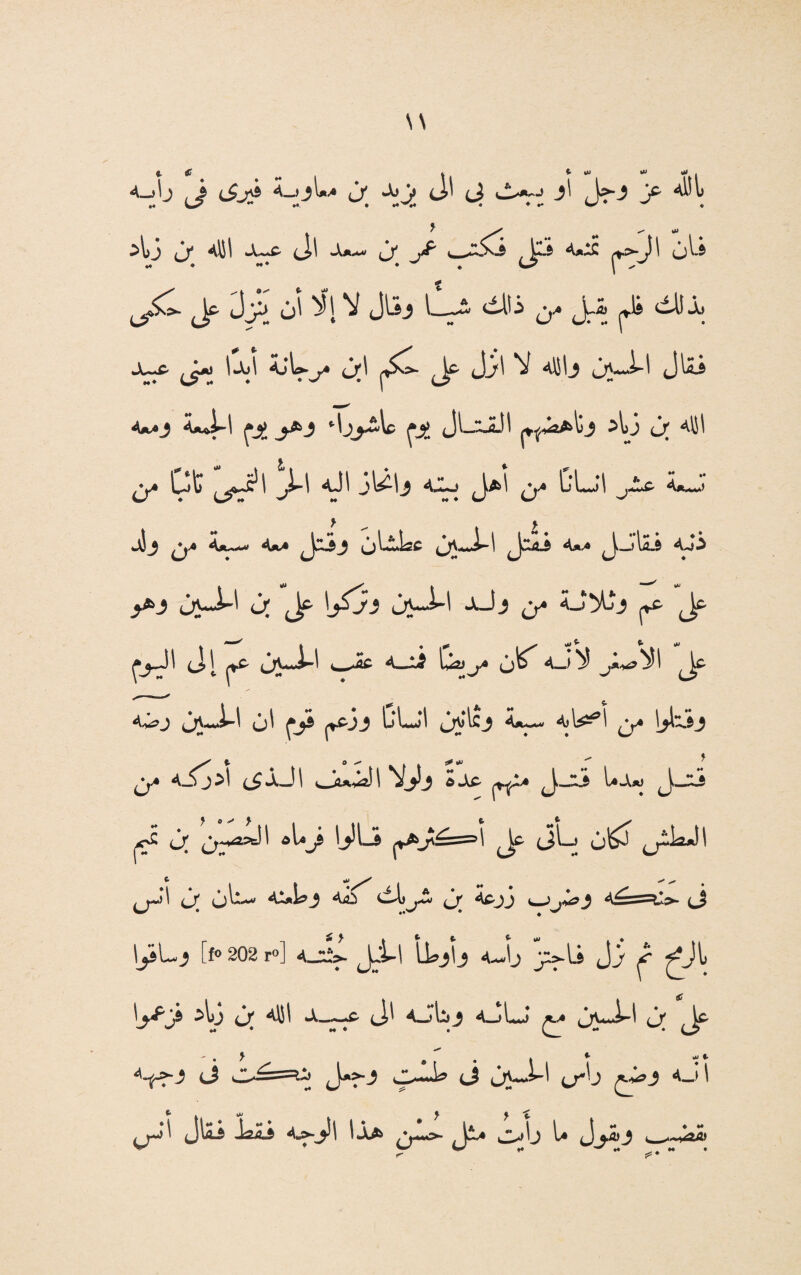 ١١
بالله عزّ وجلّ أو يبعث فى الى يزيد بن معاوية فيرى فىّ رأيه
فان الرحم تمنعه قتلى فكتب عمر بن سعد الى عبيد الله بن زياد
بذلك فلم يقبل من ذلك شيئا وقال لا إلا أن ينزل على حكمى
فقال الحسين والله لا انزل على حكم ابن مرجانة أبدا يعنى عبيد
الله بن زياد وناهضهم القتال يوم عاشوراء وهو يوم الجمعة ومعه
تسعة عشر انسانا من أهل بيته وانحاز اليه الحرّ التميمىّ تائبا من
ذنبه فقاتل معه فقتل الحسين عطشان وقتل معه سبعة من ولد
علىّ عم وثلاثة من ولد الحسين وتركوا علىّ بن الحسين وهو
علىّ الأصغر لأنه كان مريضا فمنه عقب الحسين عم الى اليوم
وقتلوا من أصحابه سبعة وثمانين انسانا وزعم قوم ان الحسين رضه
قتل بعد ما قتل منهم عدّة ولولا الضعف الذى أدركه من
العطش لكان يأتى على أكثرهم فقالوا رماه الحصين بن نمير
فى حنكه وضرب زرعة بن شريك كفّه وطعنه سنان بن أنس
بالرمح ثم نزل فاحتزّ رأسه وأوطأ الخيل جثّته [fº 202 rº] وساقوا
علىّ بن الحسين مع نسائه وبناته الى عبيد الله بن زياد فزعموا
أنّه وضع رأس الحسين فى طست وجعل ينكت فى وجهه
بقضيب ويقول ما رأيت مثل حسن هذا الوجه قط فقال أنس